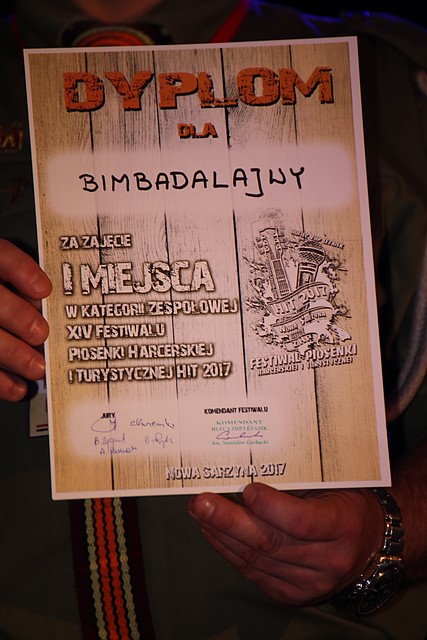 DYPLOM
DLA
BIMBADALAJNY
ZA ZAJĘCIE
I MIEJSCA
W KATEGORII ZESPOŁOWEJ
XIV FESTIWALU
PIOSENKI HARCERSKIEJ
I TURYSTYCZNEJ HIT 2017
HIT 2017
FESTIWAL PIOSENKI
HARCERSKIEJ I TURYSTYCZNEJ
JURY
KOMENDANT FESTIWALU
KOMENDANT
NOWA SARZYNA 2017